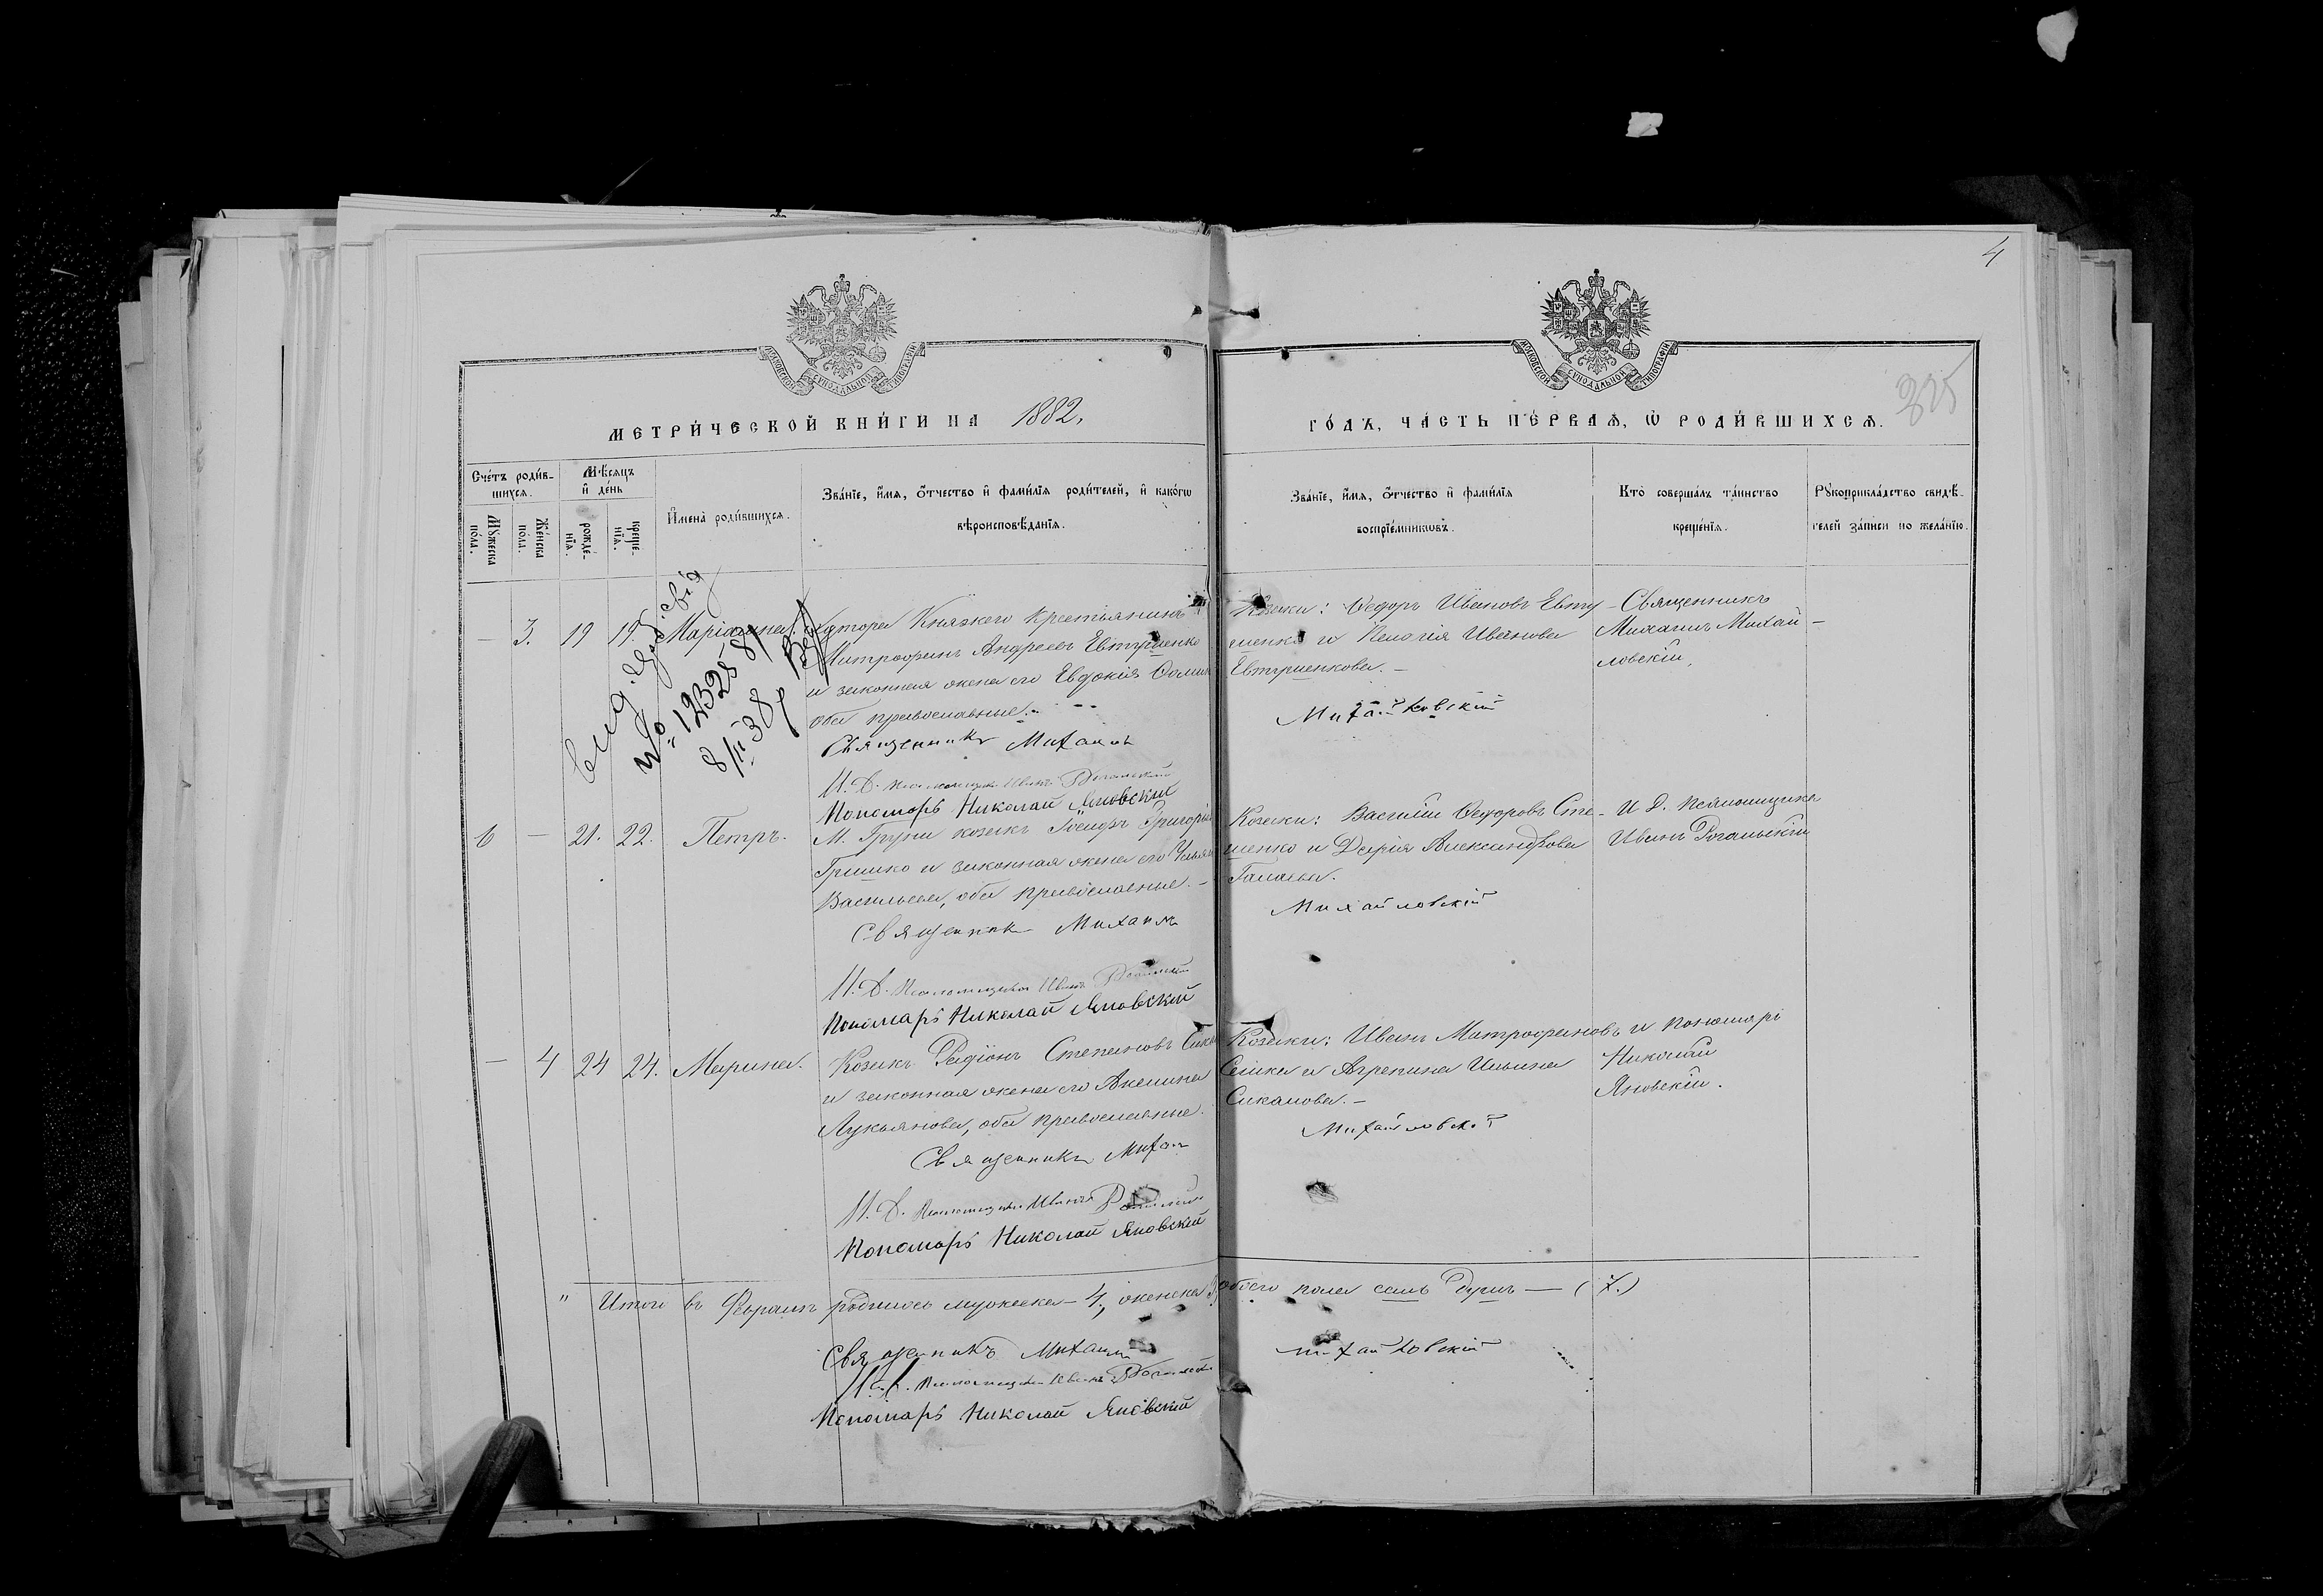 4
МОСКОВСКОЙ СΥНОДАЛЬНОЙ ТИПОГРАФІИ
МОСКОВСКОЙ СΥНОДАЛЬНОЙ ТИПОГРАФІИ
МЕТРИ́ЧЕСКОЙ КНИ́ГИ НА 1882,
ГО́ДЪ, ЧА́СТЬ ПЕ́РВАѦ, Ѡ҆ РОДИ́ВШИХСѦ.
Сче́тъ роди́в-
шихсѧ.
Мѣ́сѧцъ
и҆ де́нь
Мꙋ́жеска
по́ла.
Же́нска
по́ла.
рожде́-
нїѧ.
креще́-
нїѧ.
И҆мена̀ роди́вшихсѧ.
Зва́нїе, и҆́мѧ, ѻ҆́тчество и҆ фами́лїѧ роди́телей, и҆ како́гѡ
вѣроисповѣ́данїѧ.
Зва́нїе, и҆́мѧ, ѻ҆́тчество и҆ фами́лїѧ
воспрїе́мниковъ.
Кто̀ соверша́лъ та́инство
креще́нїѧ.
Рꙋкоприкла́дство свидѣ́-
телей за́писи по жела́нїю.
— 3. 19 19. Маріанна.
Хутора Княжего крестьянинъ
Митрофанъ Андреевъ Евтушенко
и законная жена его Евдокія
оба православные.
Священникъ Михаилъ
И. Д. Псаломщика Иванъ Рогальскій
Пономарь Николай Яновскій
Козаки: Ѳедоръ Ивановъ Евту-
шенко и Пелагія Иванова
Евтушенкова. —
Михайловскій
Священникъ
Михаилъ Михай-
ловскій.
№ 12328
6 — 21. 22. Петръ.
М. Груни козакъ Григорій
Гришко и законная жена его
Васильева, оба православные. —
Священникъ Михаилъ
И. Д. Псаломщика Иванъ Рогальскій
Пономарь Николай Яновскій
Козаки: Василій Ѳедоровъ Сте-
шенко и Дарія Александрова
Михайловскій
И. Д. Псаломщика
Иванъ Рогальскій
— 4 24 24. Марина.
Козакъ Радіонъ Степановъ
и законная жена его Акилина
Лукьянова, оба православные.
Священникъ Михаилъ
И. Д. Псаломщика Иванъ Рогальскій
Пономарь Николай Яновскій
Козаки: Иванъ Митрофановъ и
и Агрепина Ильина
Сикалова. —
Михайловскій
Пономарь
Николай
Яновскій.
" Итого въ Февралѣ родилось мужеска — 4, женска 3, обоего пола семь душъ — (7.)
Священникъ Михаилъ Михайловскій
И. Д. Псаломщика Иванъ Рогальскій
Пономарь Николай Яновскій